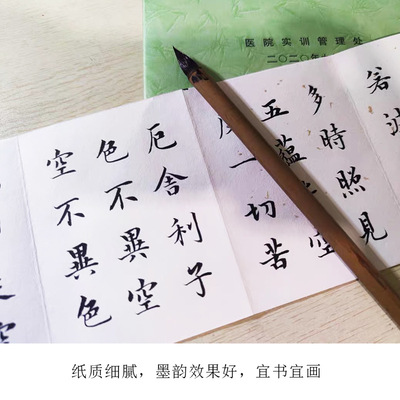 医院实训管理处
二〇二〇年
若波
多時照見
五蘊空
度一切苦
厄舍利子
色不異空
空不異色
空
纸质细腻，墨韵效果好，宜书宜画